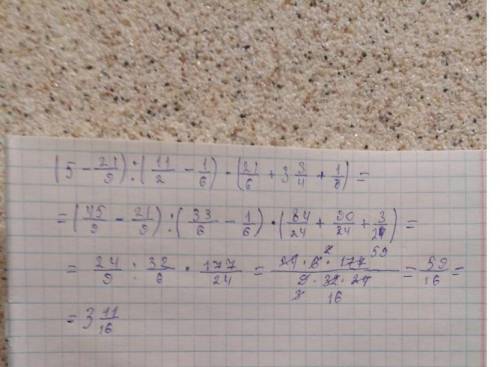 (5 - 21/9) : (11/2 - 1/6) · (21/6 + 3 3/4 + 1/8) =
= (45/9 - 21/9) : (33/6 - 1/6) · (84/24 + 90/24 + 3/24) =
= 24/9 : 32/6 · 177/24 = 24 · 6 · 177 / 9 · 32 · 24 = 59/16 =
2 59
3 16
= 3 11/16